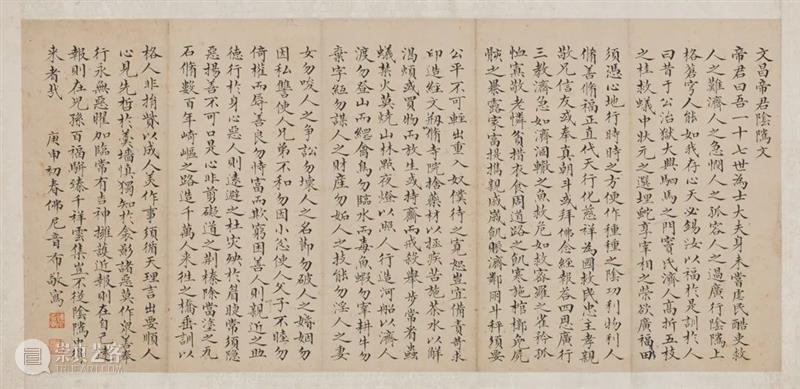 文昌帝君陰騭文
帝君曰吾一十七世為士大夫身未嘗虐民酷吏救
人之難濟人之急憫人之孤容人之過廣行陰騭上
格蒼穹人能如我存心天必錫汝以福於是訓於人
曰昔于公治獄大興駟馬之門竇氏濟人高折五枝
之桂救蟻中狀元之選埋蛇享宰相之榮欲廣福田
須憑心地行時時之方便作種種之陰功利物利人
脩善脩福正直代天行化慈祥為國救民忠主孝親
敬兄信友或奉真朝斗或拜佛念經報答四恩廣行
三教濟急如濟涸轍之魚救危如救密羅之雀矜孤
恤寡敬老憐貧措衣食周道路之飢寒施棺槨免屍
骸之暴露家富提攜親戚歲飢賑濟鄰朋斗秤須要
公平不可輕出重入奴僕待之寬恕豈宜備責苛求
印造經文剏脩寺院捨藥材以拯疾苦施茶水以解
渴煩或買物而放生或持齋而戒殺舉步常看蟲
蟻禁火莫燒山林點夜燈以照人行造河船以濟人
渡勿登山而網禽鳥勿臨水而毒魚蝦勿宰耕牛勿
棄字紙勿謀人之財產勿妒人之技能勿淫人之妻
女勿唆人之爭訟勿壞人之名節勿破人之婚姻勿
因私讐使人兄弟不和勿因小忿使人父子不睦勿
倚權而辱善良勿恃富而欺窮困善人則親近之助
德行於身心惡人則遠避之杜災殃於眉睫常須隱
惡揚善不可口是心非剪礙道之荆榛除當途之瓦
石脩數百年崎嶇之路造千萬人來往之橋垂訓以
格人非捐貲以成人美作事須循天理言出要順人
心見先哲於羹墻慎獨知於衾影諸惡莫作衆善奉
行永無惡曜加臨常有吉神擁護近報則在自己遠
報則在兒孫百福駢臻千祥雲集豈不從陰騭中得
来者哉 庚申初春佛尼音布敬寫